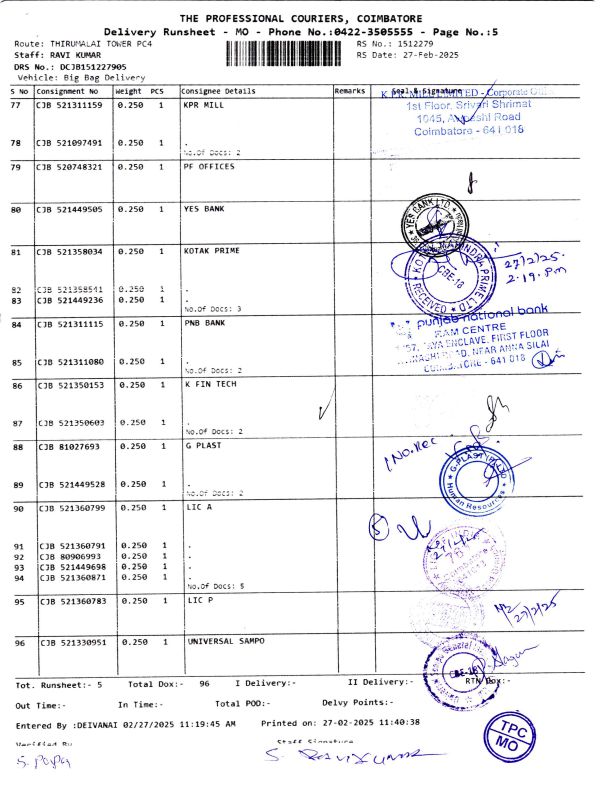 THE PROFESSIONAL COURIERS, COIMBATORE
Delivery Runsheet - MO - Phone No.:0422-3505555 - Page No.:5
Route: THIRUMALAI TOWER PC4 RS No.: 1512279
Staff: RAVI KUMAR RS Date: 27-Feb-2025
DRS No.: DCJB151227905
Vehicle: Big Bag Delivery
S No Consignment No Weight PCS Consignee Details Remarks Seal & Signature
77 CJB 521311159 0.250 1 KPR MILL
LIMITED - Corporate
1st Floor, Srivari Shrimat
1045, Avinashi Road
Coimbatore - 641 018
78 CJB 521097491 0.250 1 .
No.Of Docs: 2
79 CJB 520748321 0.250 1 PF OFFICES
80 CJB 521449505 0.250 1 YES BANK
YES BANK LTD.
81 CJB 521358034 0.250 1 KOTAK PRIME
KOTAK MAHINDRA PRIME LTD
CBE-18
RECEIVED
27/2/25.
2.19.Pm
82 CJB 521358541 0.250 1 .
83 CJB 521449236 0.250 1 .
No.Of Docs: 3
84 CJB 521311115 0.250 1 PNB BANK
punjab national bank
CENTRE
ENCLAVE, FIRST FLOOR
ROAD, NEAR ANNA SILAI
COIMBATORE - 641 018
85 CJB 521311080 0.250 1 .
No.Of Docs: 2
86 CJB 521350153 0.250 1 K FIN TECH
87 CJB 521350603 0.250 1 .
No.Of Docs: 2
88 CJB 81027693 0.250 1 G PLAST
1 No. Rec
G-PLAST (P) LTD
Human Resources
89 CJB 521449528 0.250 1 .
No.Of Docs: 2
90 CJB 521360799 0.250 1 LIC A
5
91 CJB 521360791 0.250 1 .
92 CJB 80906993 0.250 1 .
93 CJB 521449698 0.250 1 .
94 CJB 521360871 0.250 1 .
No.Of Docs: 5
95 CJB 521360783 0.250 1 LIC P
27/2/25
96 CJB 521330951 0.250 1 UNIVERSAL SAMPO
CBE-18
Tot. Runsheet:- 5 Total Dox:- 96 I Delivery:- II Delivery:- RTN Dox:-
Out Time:- In Time:- Total POD:- Delvy Points:-
Entered By :DEIVANAI 02/27/2025 11:19:45 AM Printed on: 27-02-2025 11:40:38
TPC
MO
Verified By Staff Signature
S. RAVIKUMAR